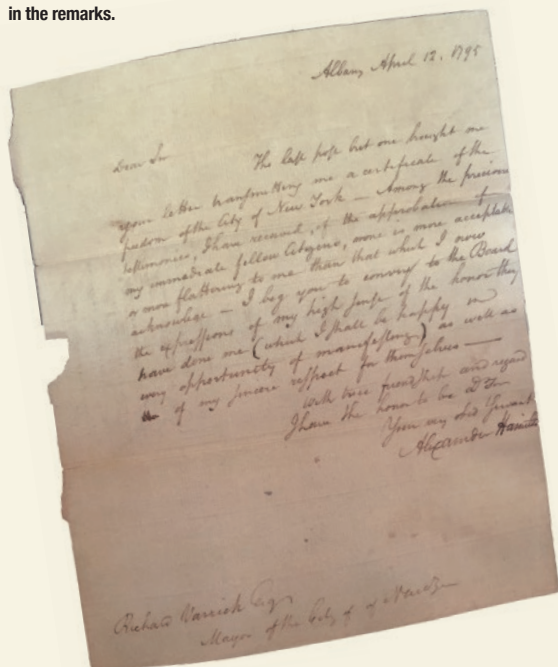 in the remarks.
Albany April 12, 1795
Dear Sir
The last post but one brought me
your letter transmitting me a certificate of the
freedom of the City of New York — Among the precious
testimonies, I have received, of the approbation of
my immediate fellow Citizens, none is more acceptable
or more flattering to me than that which I now
acknowlege — I beg you to convey to the Board
the expressions of my high sense of the honor they
have done me (which I shall be happy in
every opportunity of manifesting) as well as
of my sincere respect for themselves —
With true friendship and regard
I have the honor to be D Sir
Your very obd Servant
Alexander Hamilton
Richard Varick Esq
Mayor of the City of of